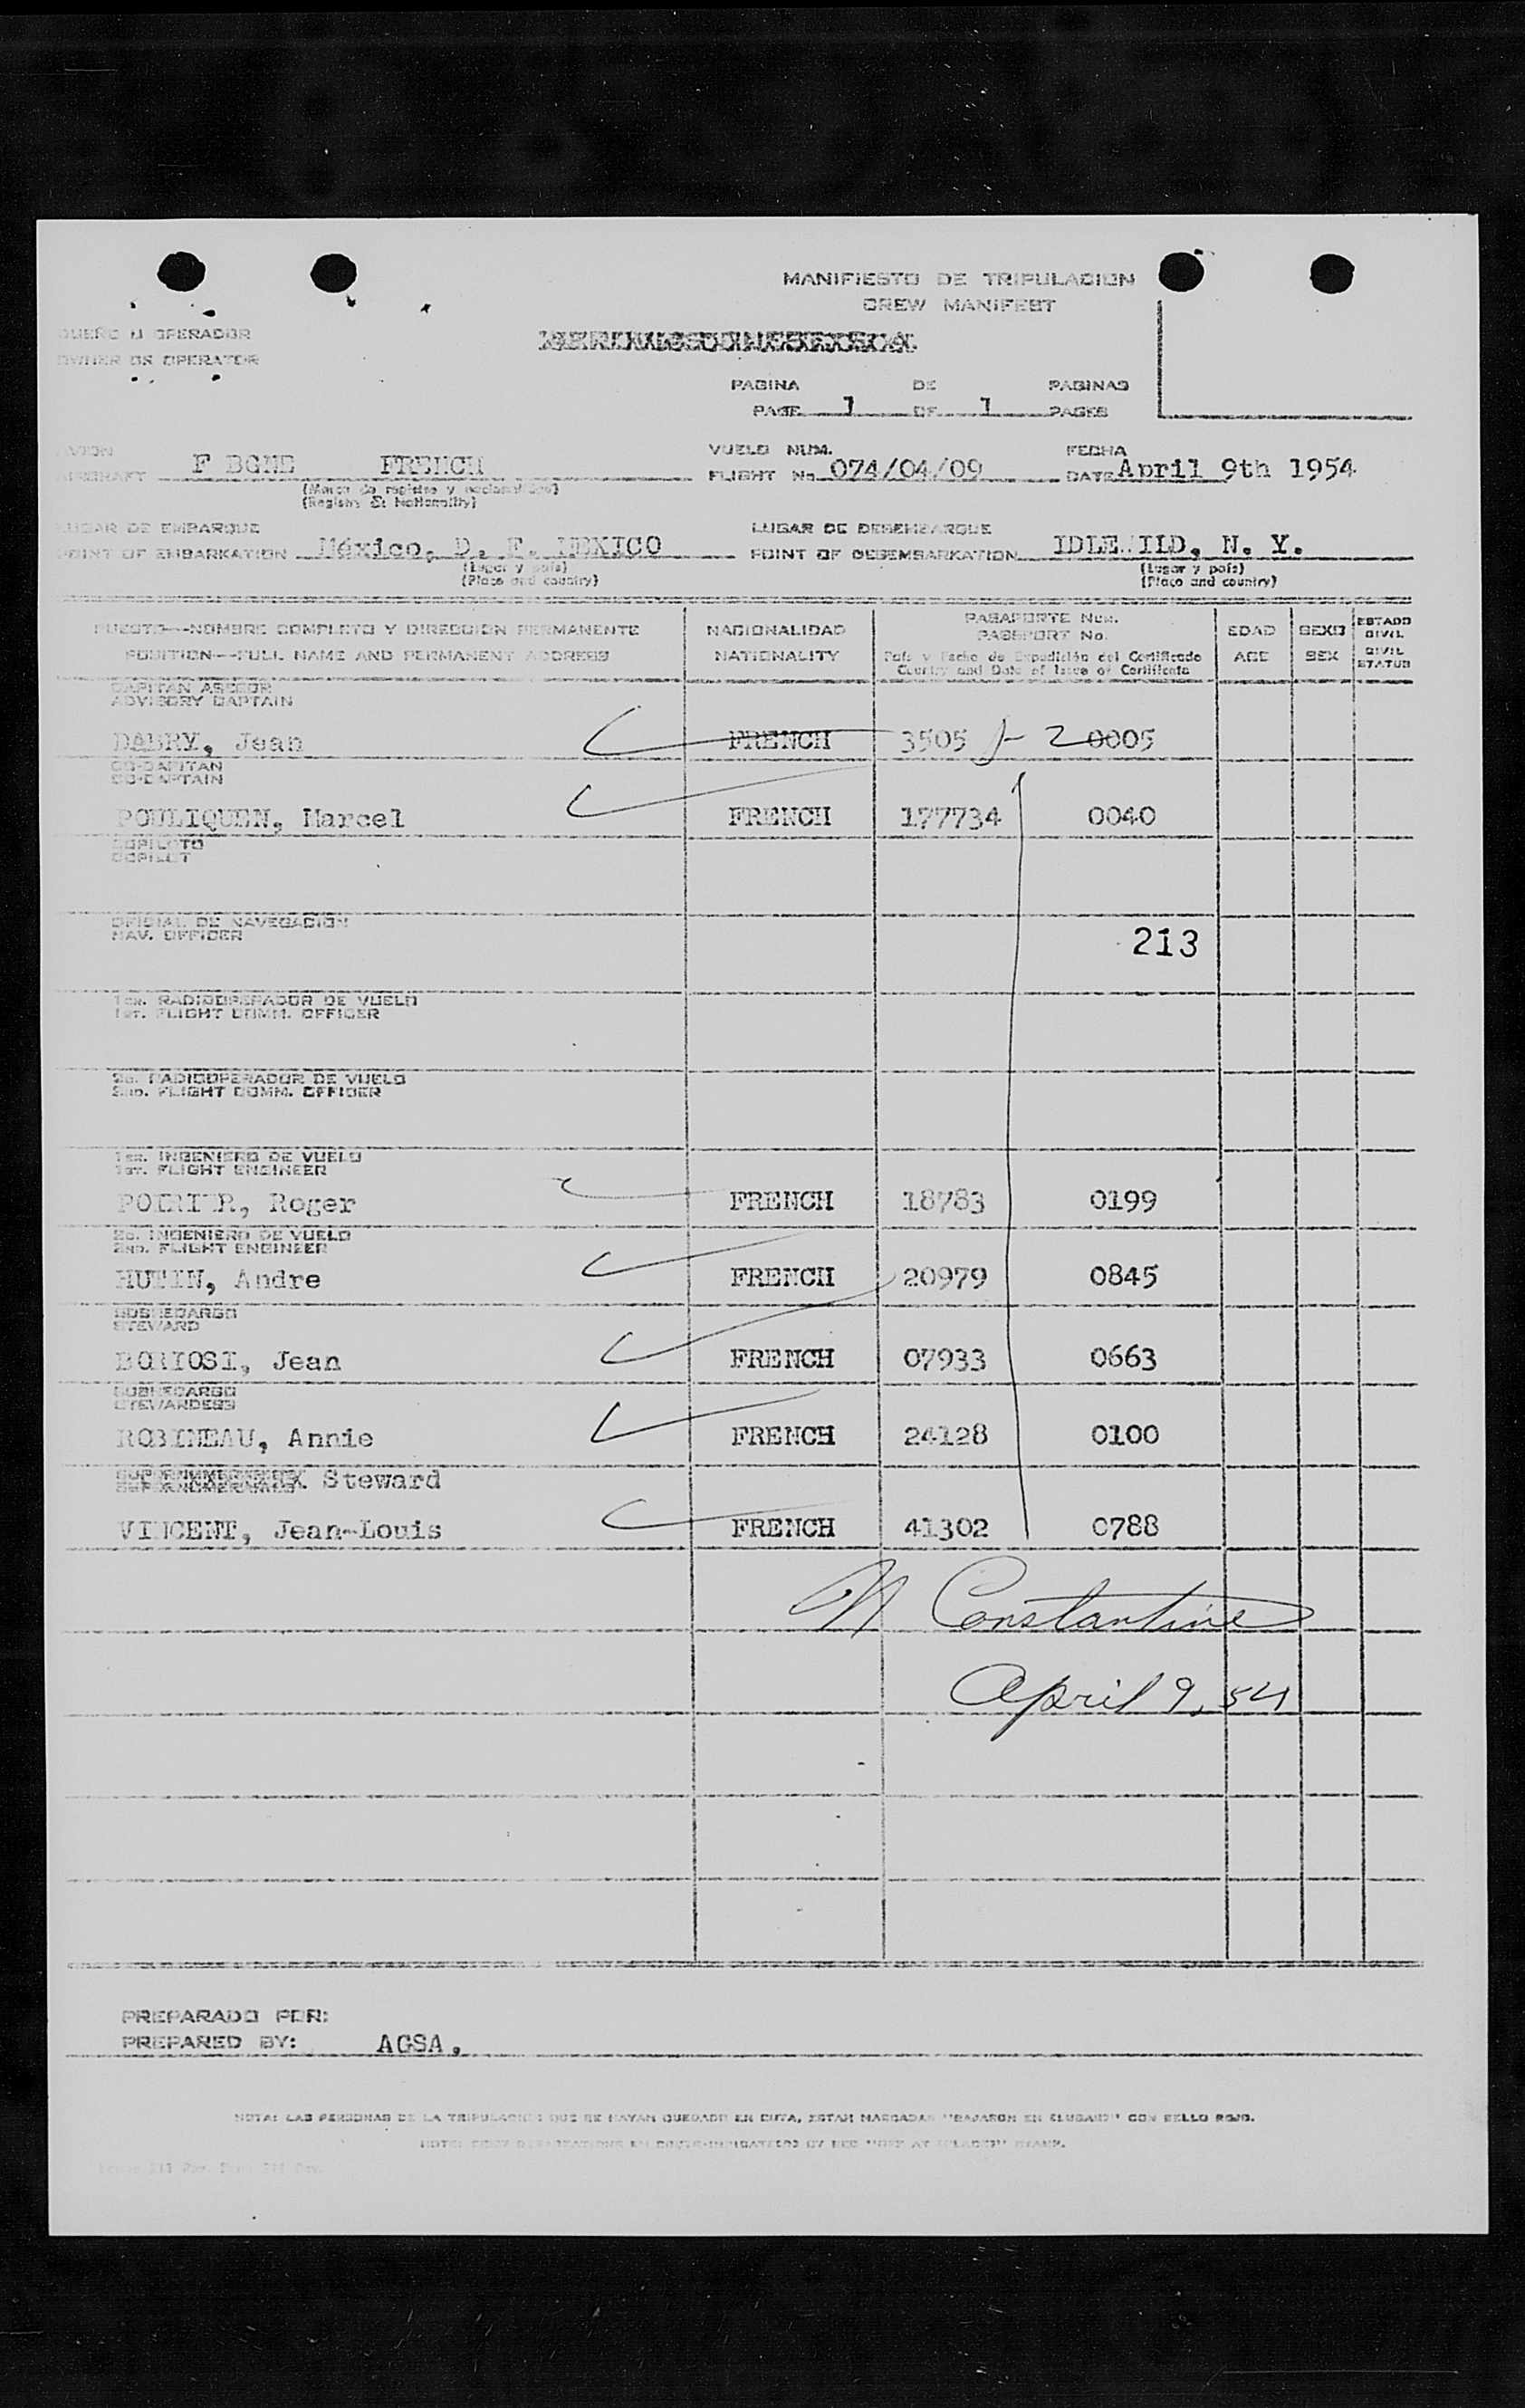 MANIFIESTO DE TRIPULACION
CREW MANIFEST
DUEÑO U OPERADOR
OWNER OR OPERATOR
PAGINA DE PAGINAS
PAGE 1 OF 1 PAGES
AVION
AIRCRAFT F BGNE FRENCH
(Marca de registro y nacionalidad)
(Registry & Nationality)
VUELO NUM.
FLIGHT No. 074/04/09
FECHA
DATE April 9th 1954
LUGAR DE EMBARQUE
POINT OF EMBARKATION México, D. F. MEXICO
(Lugar y país)
(Place and country)
LUGAR DE DESEMBARQUE
POINT OF DESEMBARKATION IDLEWILD, N. Y.
(Lugar y país)
(Place and country)
PUESTO--NOMBRE COMPLETO Y DIRECCION PERMANENTE
POSITION--FULL NAME AND PERMANENT ADDRESS
NACIONALIDAD
NATIONALITY
PASAPORTE Num.
PASSPORT No.
País y Fecha de Expedición del Certificado
Country and Date of Issue of Certificate
EDAD
AGE
SEXO
SEX
ESTADO CIVIL
CIVIL STATUS
CAPITAN ASESOR
ADVISORY CAPTAIN
DABRY, Jean FRENCH 3505 - 2 0005
CO-CAPITAN
CO-CAPTAIN
POULIQUEN, Marcel FRENCH 177734 0040
COPILOTO
COPILOT
OFICIAL DE NAVEGACION
NAV. OFFICER
213
1er. RADIOOPERADOR DE VUELO
1st. FLIGHT COMM. OFFICER
2o. RADIOOPERADOR DE VUELO
2nd. FLIGHT COMM. OFFICER
1er. INGENIERO DE VUELO
1st. FLIGHT ENGINEER
POIRIER, Roger FRENCH 18783 0199
2o. INGENIERO DE VUELO
2nd. FLIGHT ENGINEER
HUTIN, Andre FRENCH 20979 0845
SOBRECARGO
STEWARD
BORIOSI, Jean FRENCH 07933 0663
SOBRECARGO
STEWARDESS
ROBINEAU, Annie FRENCH 24128 0100
Steward
VINCENT, Jean-Louis FRENCH 41302 0788
N Constantine
April 9, 54
PREPARADO POR:
PREPARED BY: AGSA.
NOTA: LAS PERSONAS DE LA TRIPULACION QUE SE HAYAN QUEDADO EN RUTA, ESTAN MARCADAS "BAJARON EN (LUGAR)" CON SELLO ROJO.